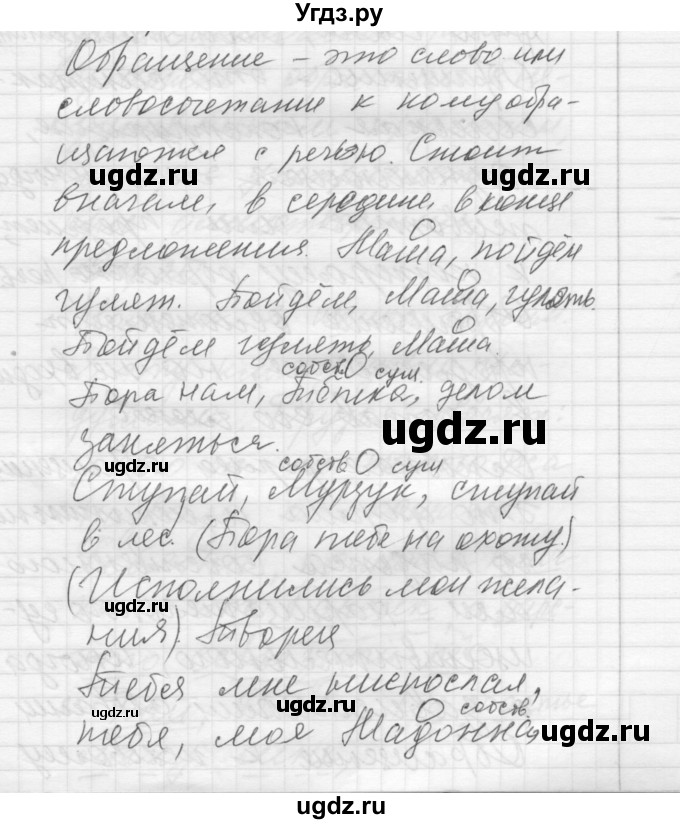 Угдз.ру
Обращение – это слово или
словосочетание к кому обра-
щаются с речью. Стоит
вначале, в середине, в конце
предложения. Маша, пойдём
гулят. Пойдём, Маша, гулять.
Пойдём гулять, Маша.
собств. О сущ.
Пора нам, Тёпка, делом
заняться.
собств О сущ
Ступай, Мурзук, ступай
в лес. (Пора тебе на охоту.)
(Исполнились мои жела-
ния). Творец
Тебя мне ниспослал,
О собств.
тебя, моя Мадонна,
ugdz.ru
ugdz.ru
ugdz.ru
ugdz.ru
ugdz.ru
ugdz.ru
ugdz.ru
ugdz.ru
ugdz.ru
ugdz.ru
ugdz.ru